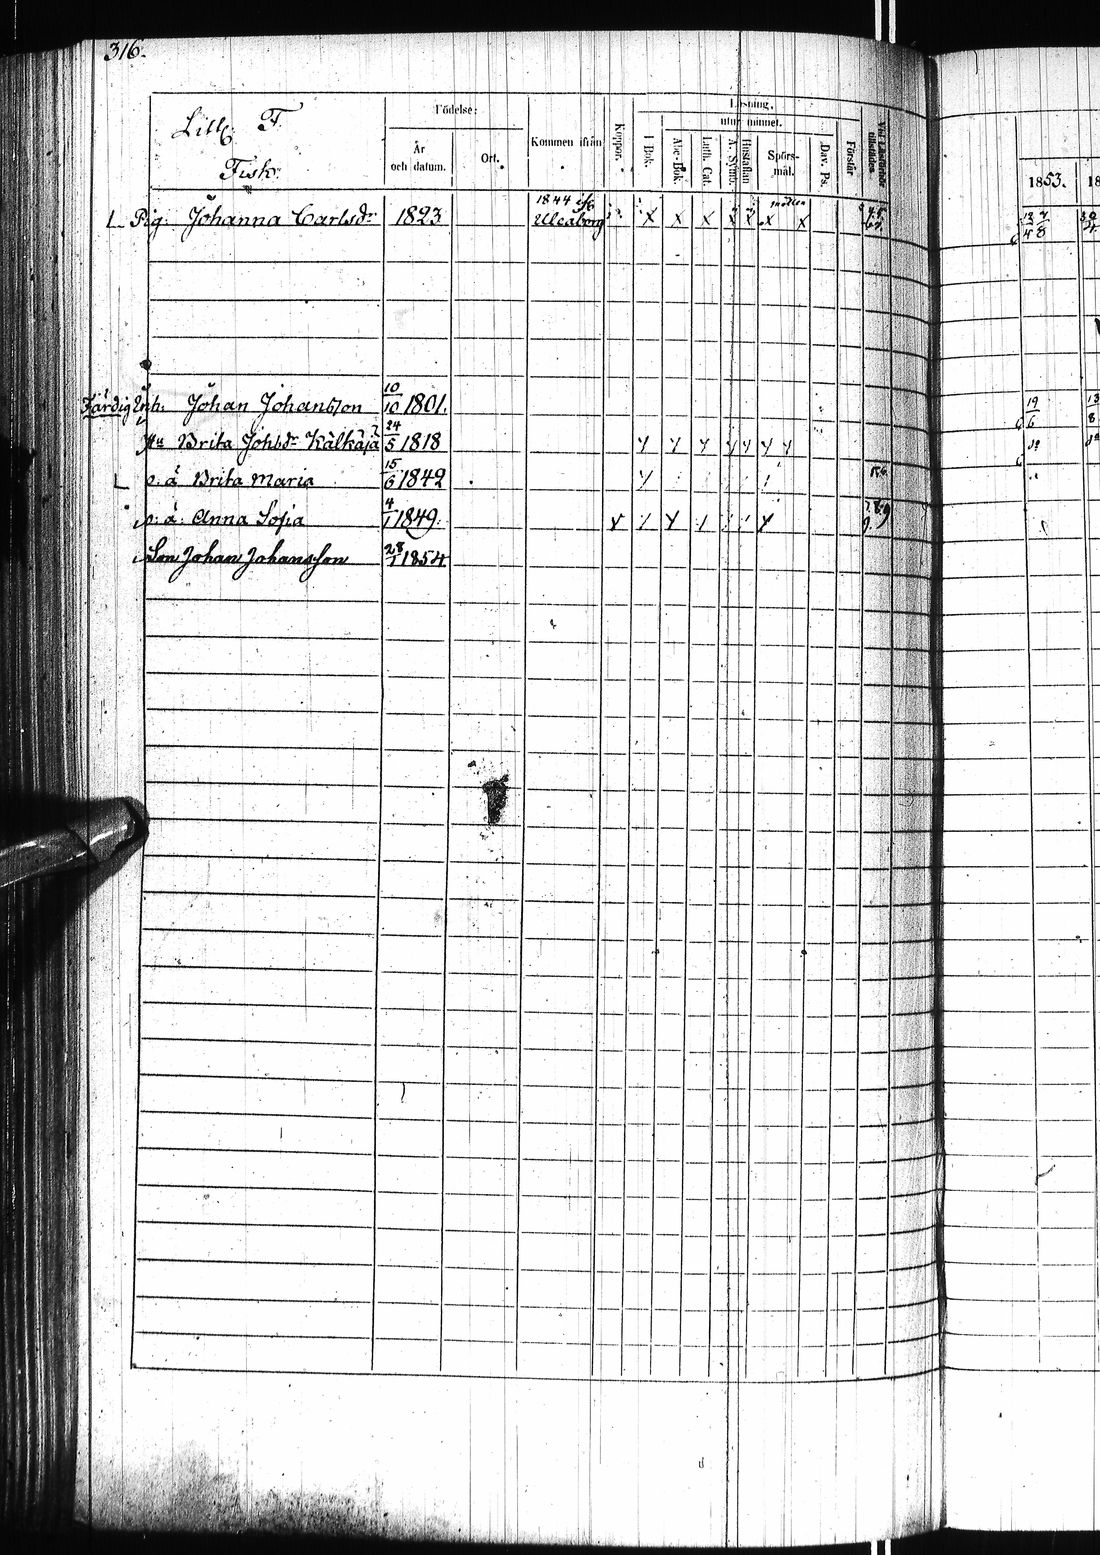 316.
Litt. F.
Fisk.
Födelse:
År och datum.
Ort.
Kommen ifrån
Koppor.
Läsning,
utur minnet.
I Bok.
Abc-Bok.
Luth. Cat.
A. Symb.
Hustaflan
Spörs-mål.
Dav. Ps.
Förstår
Vid Läseförhör tillstädes.
1853.
Pig. Johanna Carlsdr 1823 1844 Uleåborg x x x x x x x
Färdig Inh. Johan Johansson 10/10 1801. 19/6
Hu Brita Johsdr Kälkäjä 24/5 1818
D. ä Brita Maria 15/6 1842
D. ä. Anna Sofia 4/1 1849.
Son Johan Johansson 28/1 1854